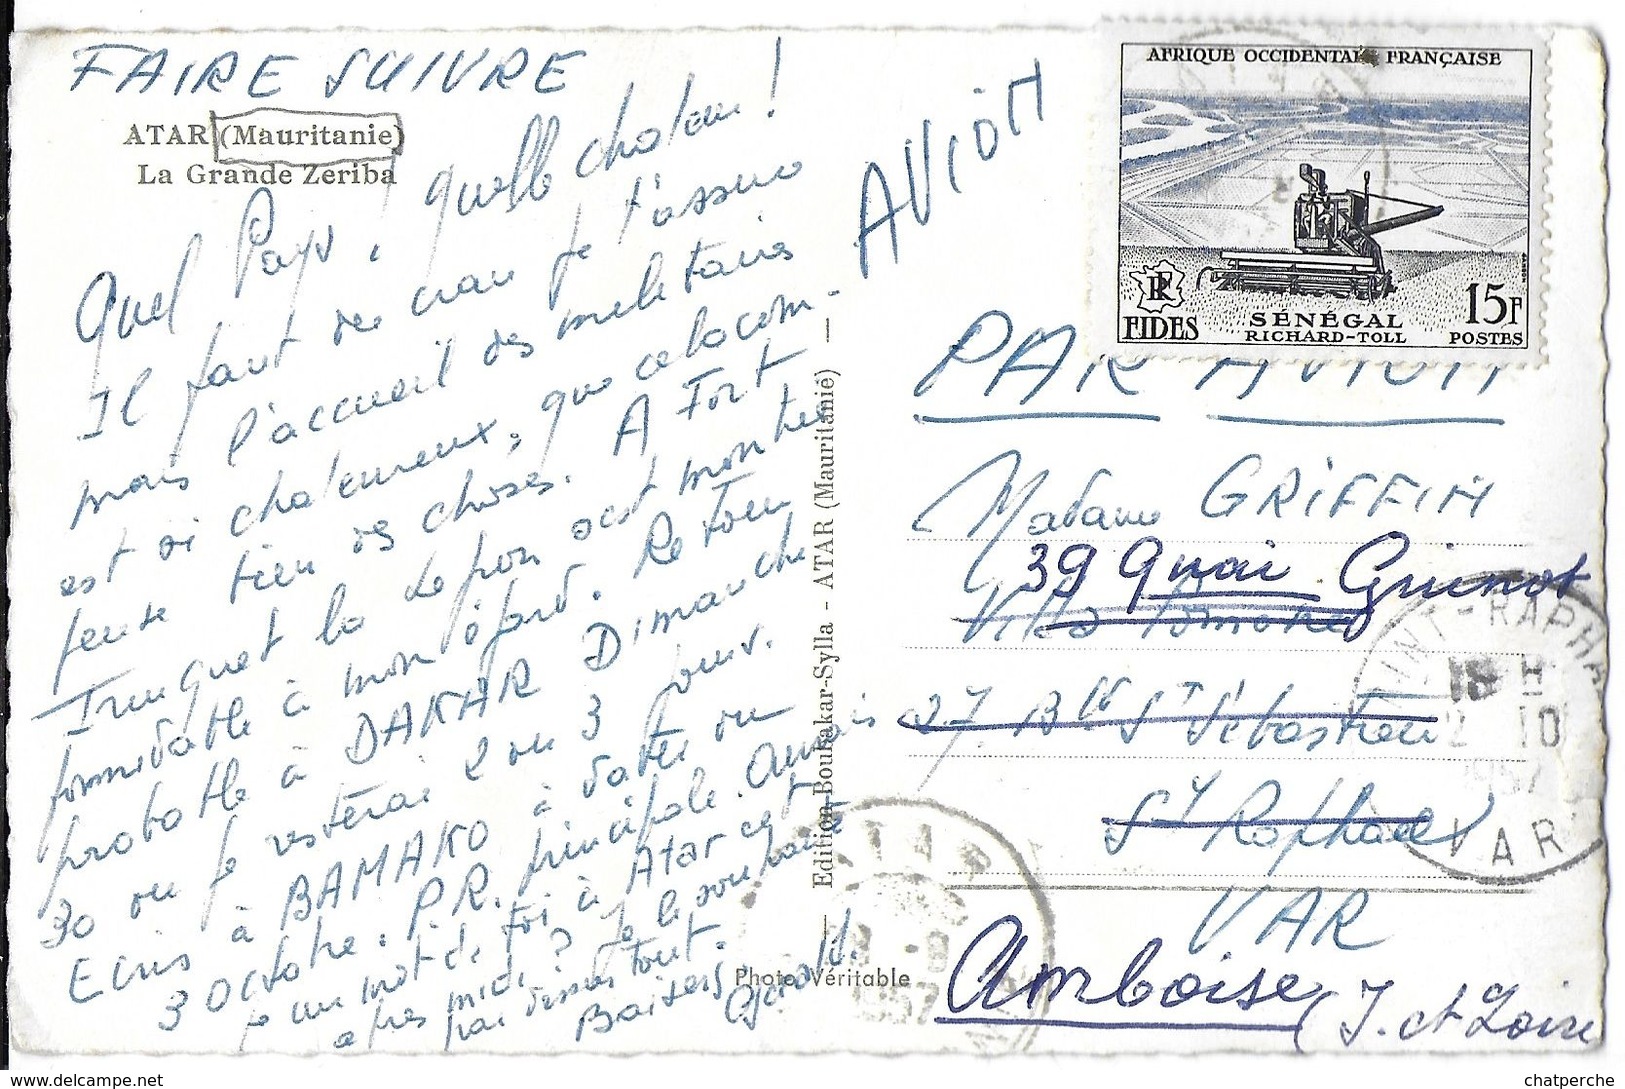 FAIRE SUIVRE
ATAR (Mauritanie)
La Grande Zeriba
Quel Pays, quelle chaleur !
Il faut du cran je t'assure
mais l'accueil des militaires
est si chaleureux, que cela com-
pense bien des choses. A Fort
Trinquet la réception s'est montrée
formidable à mon égard. Retour
probable à DAKAR Dimanche
30 où je resterai 2 ou 3 jours.
Ecris à BAMAKO à dater du
3 Octobre. PR. principale. Aurais
je un mot de toi à Atar cet
après midi ? Je le souhaite
par dessus tout.
Baisers
Gérald.
AVION
Edition Boubakar-Sylla - ATAR (Mauritanie)
Photo Véritable
AFRIQUE OCCIDENTALE FRANÇAISE
RF
FIDES
SÉNÉGAL
RICHARD-TOLL
15F
POSTES
PAR AVION
Madame GRIFFIN
39 Quai Guinot
Villa
27 Bd St Sébastien
St Raphael
VAR
Amboise (I. et Loire
SAINT-RAPHA
18 H
2 10
1957
VAR
ATAR
1957
chatperche